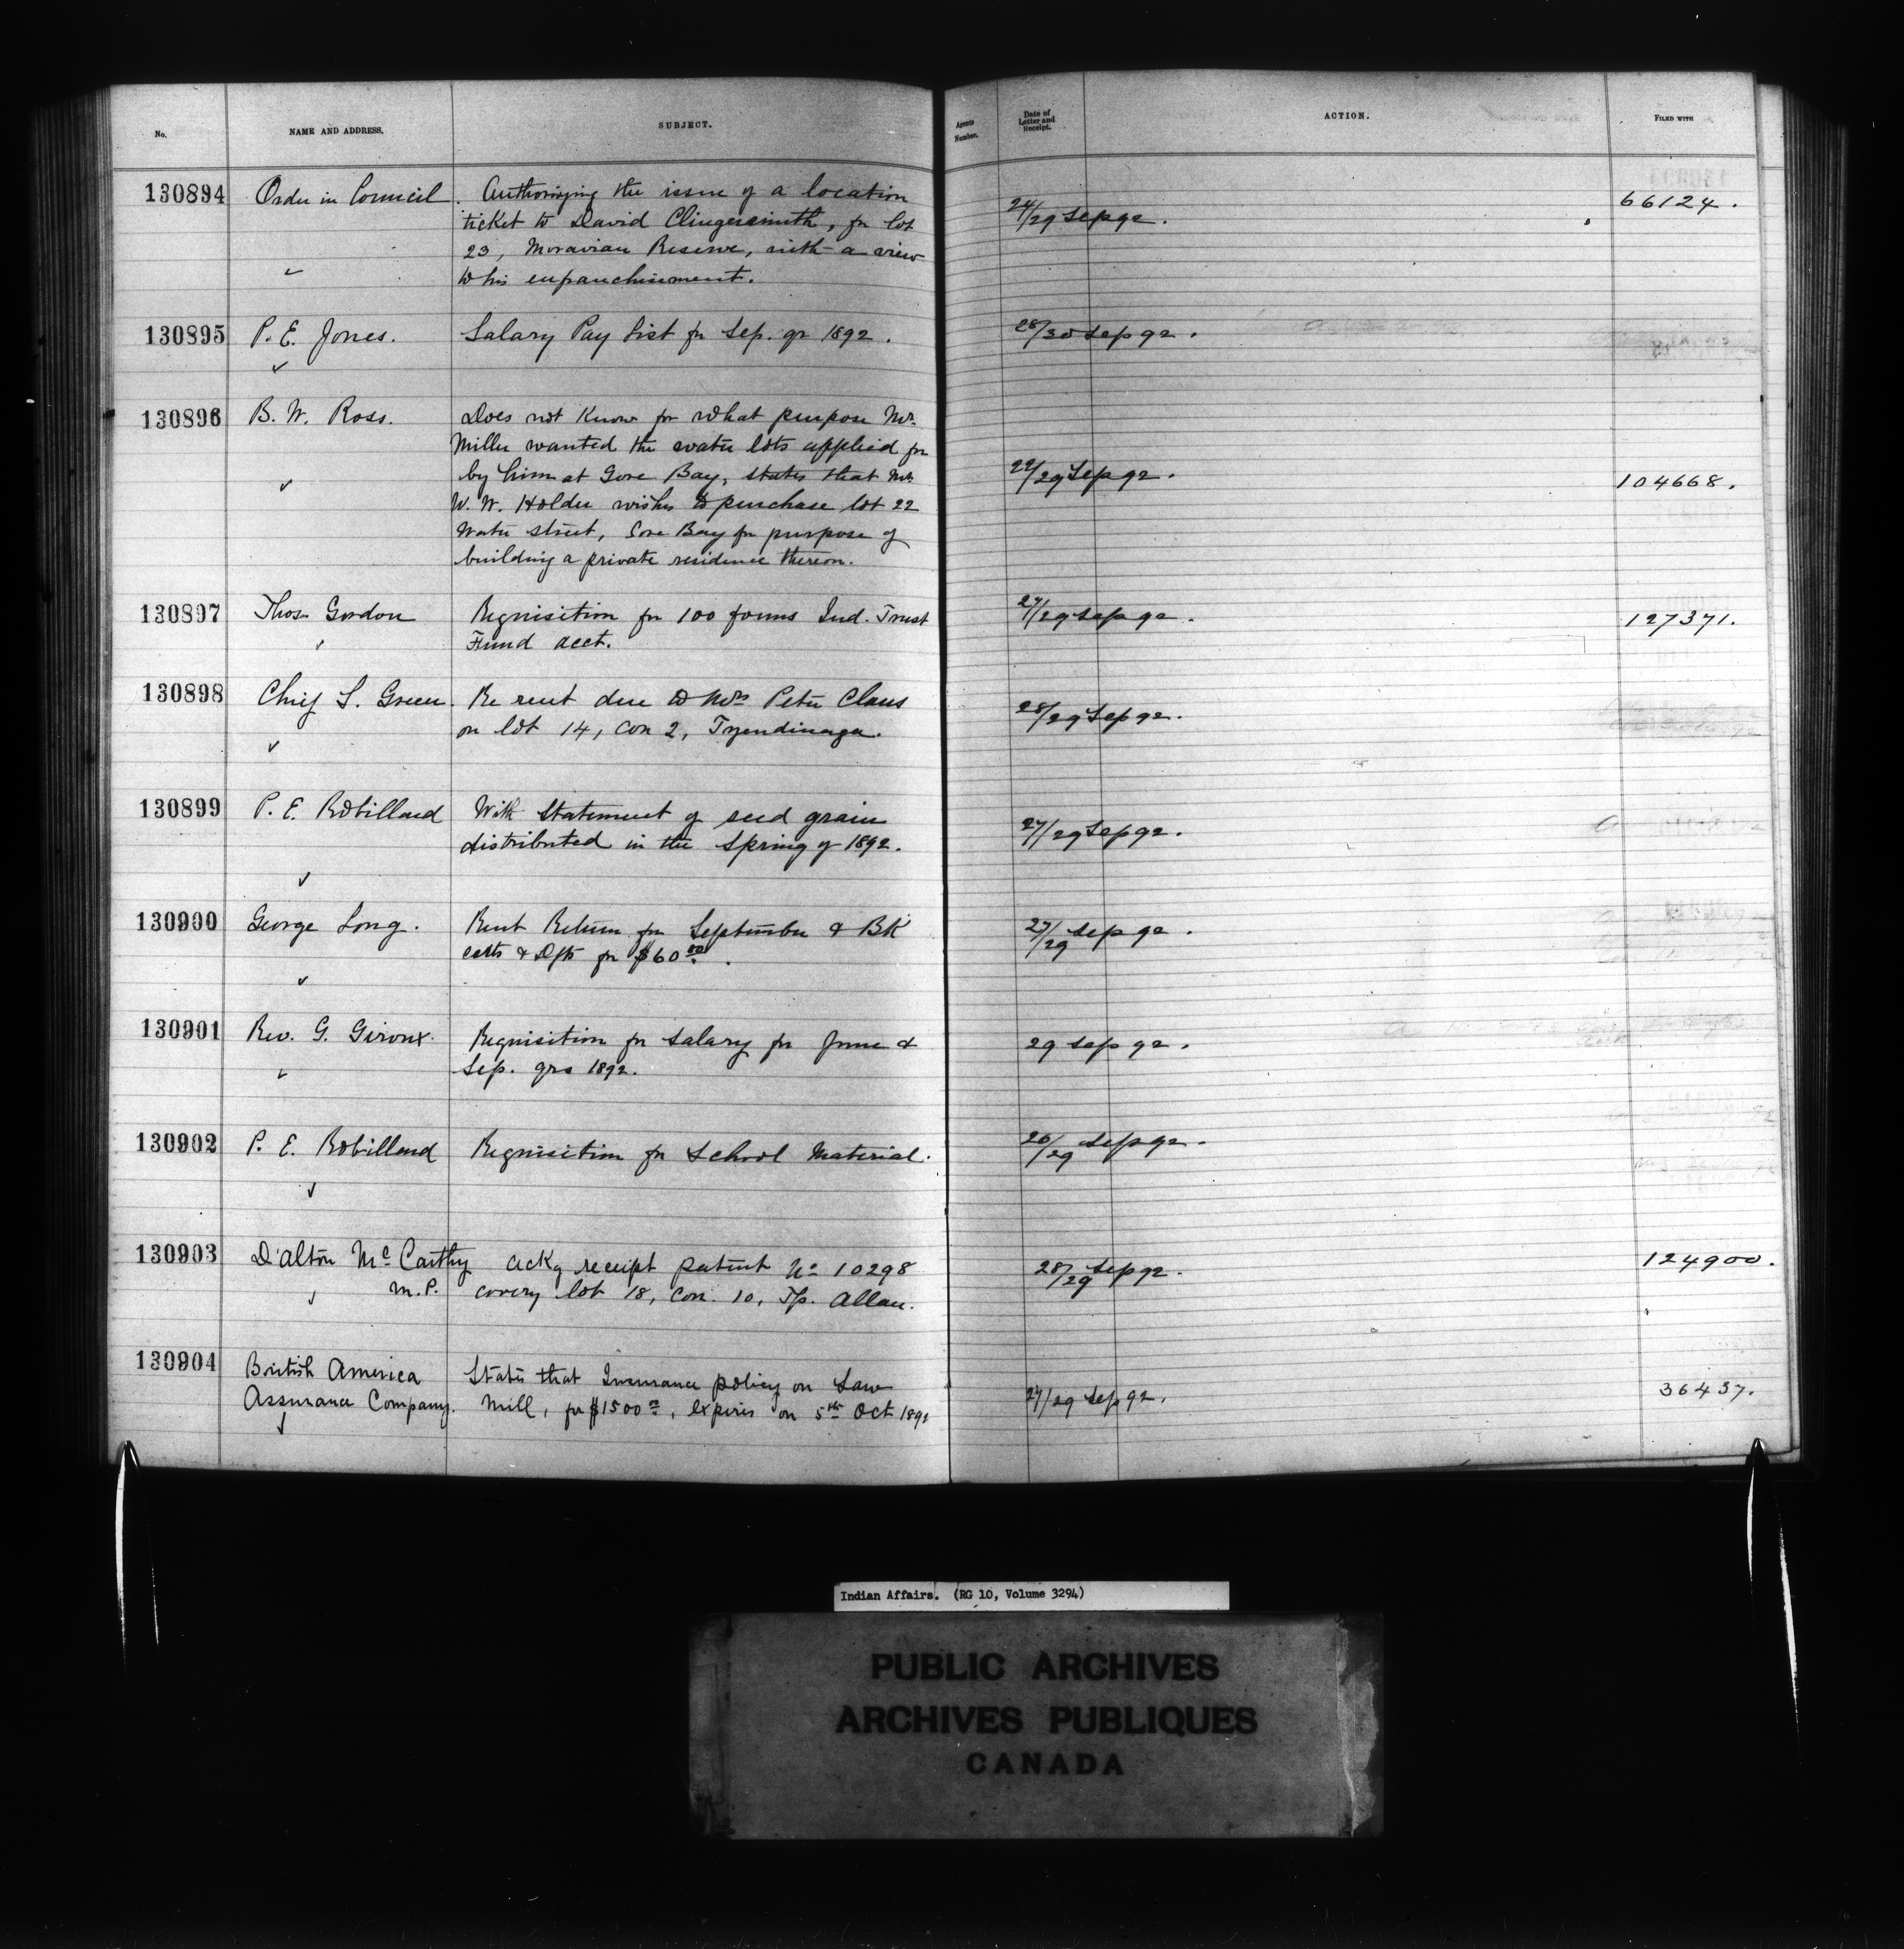 No. NAME AND ADDRESS. SUBJECT. Agents Number. Date of Letter and Receipt. ACTION. FILED WITH
130894 Order in Council. Authorizing the issue of a location 24/29 Sep 92. 66124.
ticket to David Clingersmith, for lot
23, Moravian Reserve, with a view
to his enfranchisement.
130895 P. E. Jones. Salary Pay List for Sep. qr 1892. 28/30 Sep 92.
130896 B. W. Ross. Does not know for what purpose Mr.
Miller wanted the water lots applied for
by him at Gore Bay, states that Mr. 22/29 Sep 92. 104668.
W. W. Holder wishes to purchase lot 22
Water street, Gore Bay for purpose of
building a private residence thereon.
130897 Thos. Gordon Requisition for 100 forms Ind. Trust 27/29 Sep 92. 127371.
Fund acct.
130898 Chief S. Green. Re rent due to Mrs Peter Claus 28/29 Sep 92.
on lot 14, con 2, Tyendinaga.
130899 P. E. Robillard With Statement of seed grain 27/29 Sep 92.
distributed in the Spring of 1892.
130900 George Long. Rent Return for September & BK 27/29 Sep 92.
certs & Dfts for $60.00.
130901 Rev. G. Giroux. Requisition for Salary for June & 29 Sep 92.
Sep. qrs 1892.
130902 P. E. Robillard Requisition for School Material. 26/29 Sep 92.
130903 D'Alton McCarthy Ackg receipt patent No 10298 28/29 Sep 92. 124900.
M.P. coverg lot 18, Con. 10, Tp. Allan.
130904 British America States that Insurance policy on Saw 27/29 Sep 92. 36437.
Assurance Company. Mill, for $1500.00, expires on 5th Oct 1892
Indian Affairs. (RG 10, Volume 3294)
PUBLIC ARCHIVES
ARCHIVES PUBLIQUES
CANADA